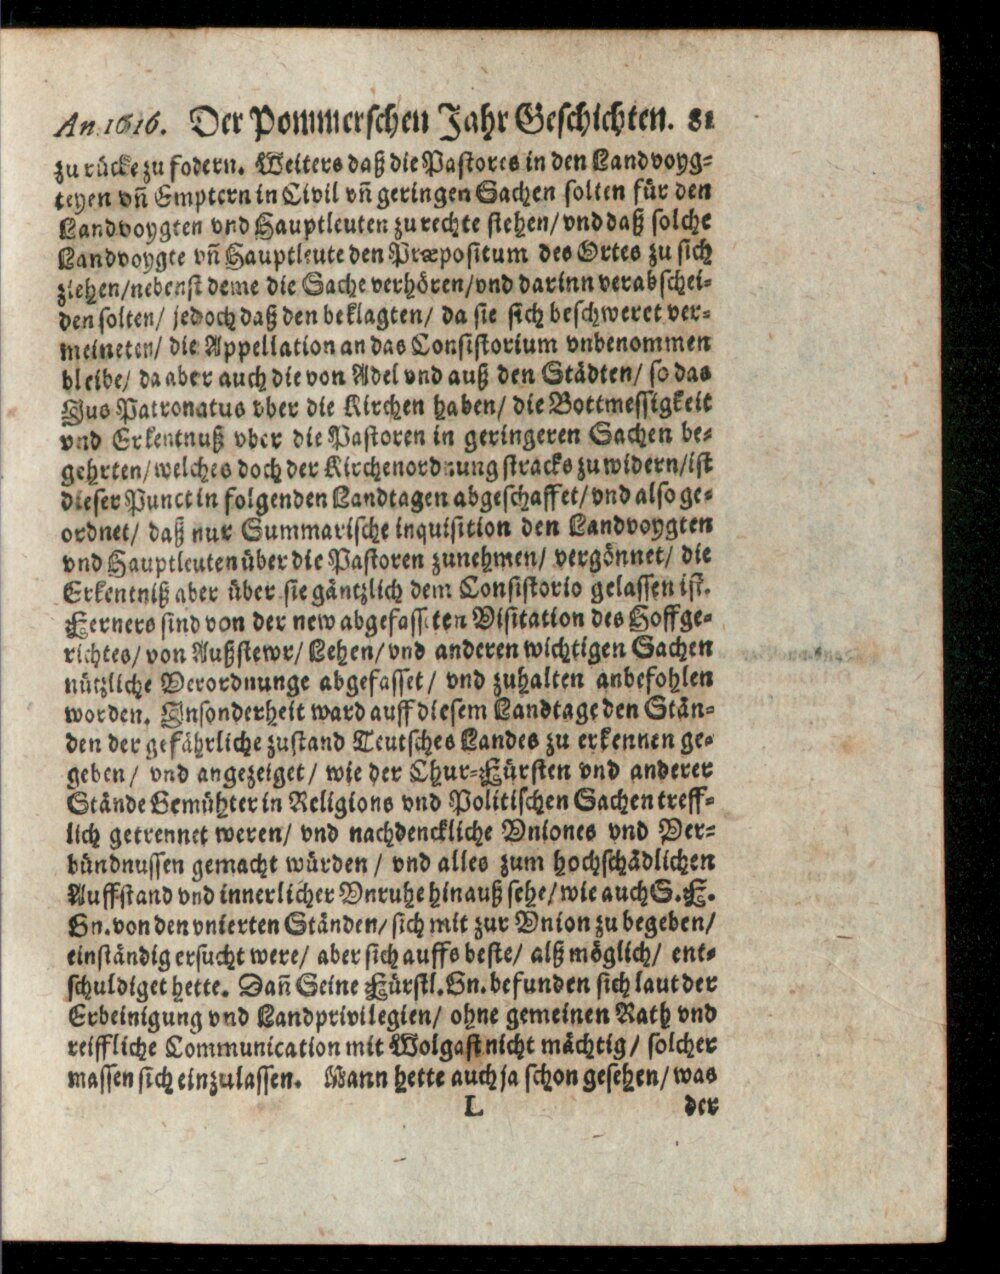 An. 1616. Der Pommerschen Jahr Geschichten. 81
zu rücke zu fodern. Weiters daß die Pastores in den Landvoyg-
teyen vn̄ Emptern in Civil vn̄ geringen Sachen solten für den
Landvoygten vnd Hauptleuten zu rechte stehen/ vnd daß solche
Landvoygte vn̄ Hauptleute den Præpositum des Ortes zu sich
ziehen/ nebenst deme die Sache verhören/ vnd darinn verabschei-
den solten/ jedoch daß den beklagten/ da sie sich beschweret ver-
meineten/ die Appellation an das Consistorium vnbenommen
bleibe/ da aber auch die von Adel vnd auß den Städten/ so das
Jus Patronatus vber die Kirchen haben/ die Bottmessigkeit
vnd Erkentnuß vber die Pastoren in geringeren Sachen be-
gehrten/ welches doch der Kirchenordnung stracks zu widern/ ist
dieser Punct in folgenden Landtagen abgeschaffet/ vnd also ge-
ordnet/ daß nur Summarische inquisition den Landvoygten
vnd Hauptleuten über die Pastoren zunehmen/ vergönnet/ die
Erkentniß aber über sie gäntzlich dem Consistorio gelassen ist.
Ferners sind von der new abgefasseten Visitation des Hoffge-
richtes/ von Außstewr/ Lehen/ vnd anderen wichtigen Sachen
nützliche Verordnunge abgefasset/ vnd zuhalten anbefohlen
worden. Insonderheit ward auff diesem Landtage den Stän-
den der gefährliche zustand Teutsches Landes zu erkennen ge-
geben/ vnd angezeiget/ wie der Chur-Fürsten vnd anderer
Stände Gemühter in Religions vnd Politischen Sachen treff-
lich getrennet weren/ vnd nachdenckliche Vniones vnd Ver-
bündnussen gemacht würden/ vnd alles zum hochschädlichen
Auffstand vnd innerlicher Vnruhe hinauß sehe/ wie auch S. F.
Gn. von den vnierten Ständen/ sich mit zur Vnion zu begeben/
einständig ersucht were/ aber sich auffs beste/ alß möglich/ ent-
schuldiget hette. Dan̄ Seine Fürstl. Gn. befunden sich laut der
Erbeinigung vnd Landprivilegien/ ohne gemeinen Rath vnd
reiffliche Communication mit Wolgast nicht mächtig/ solcher
massen sich einzulassen. Mann hette auch ja schon gesehen/ was
L der